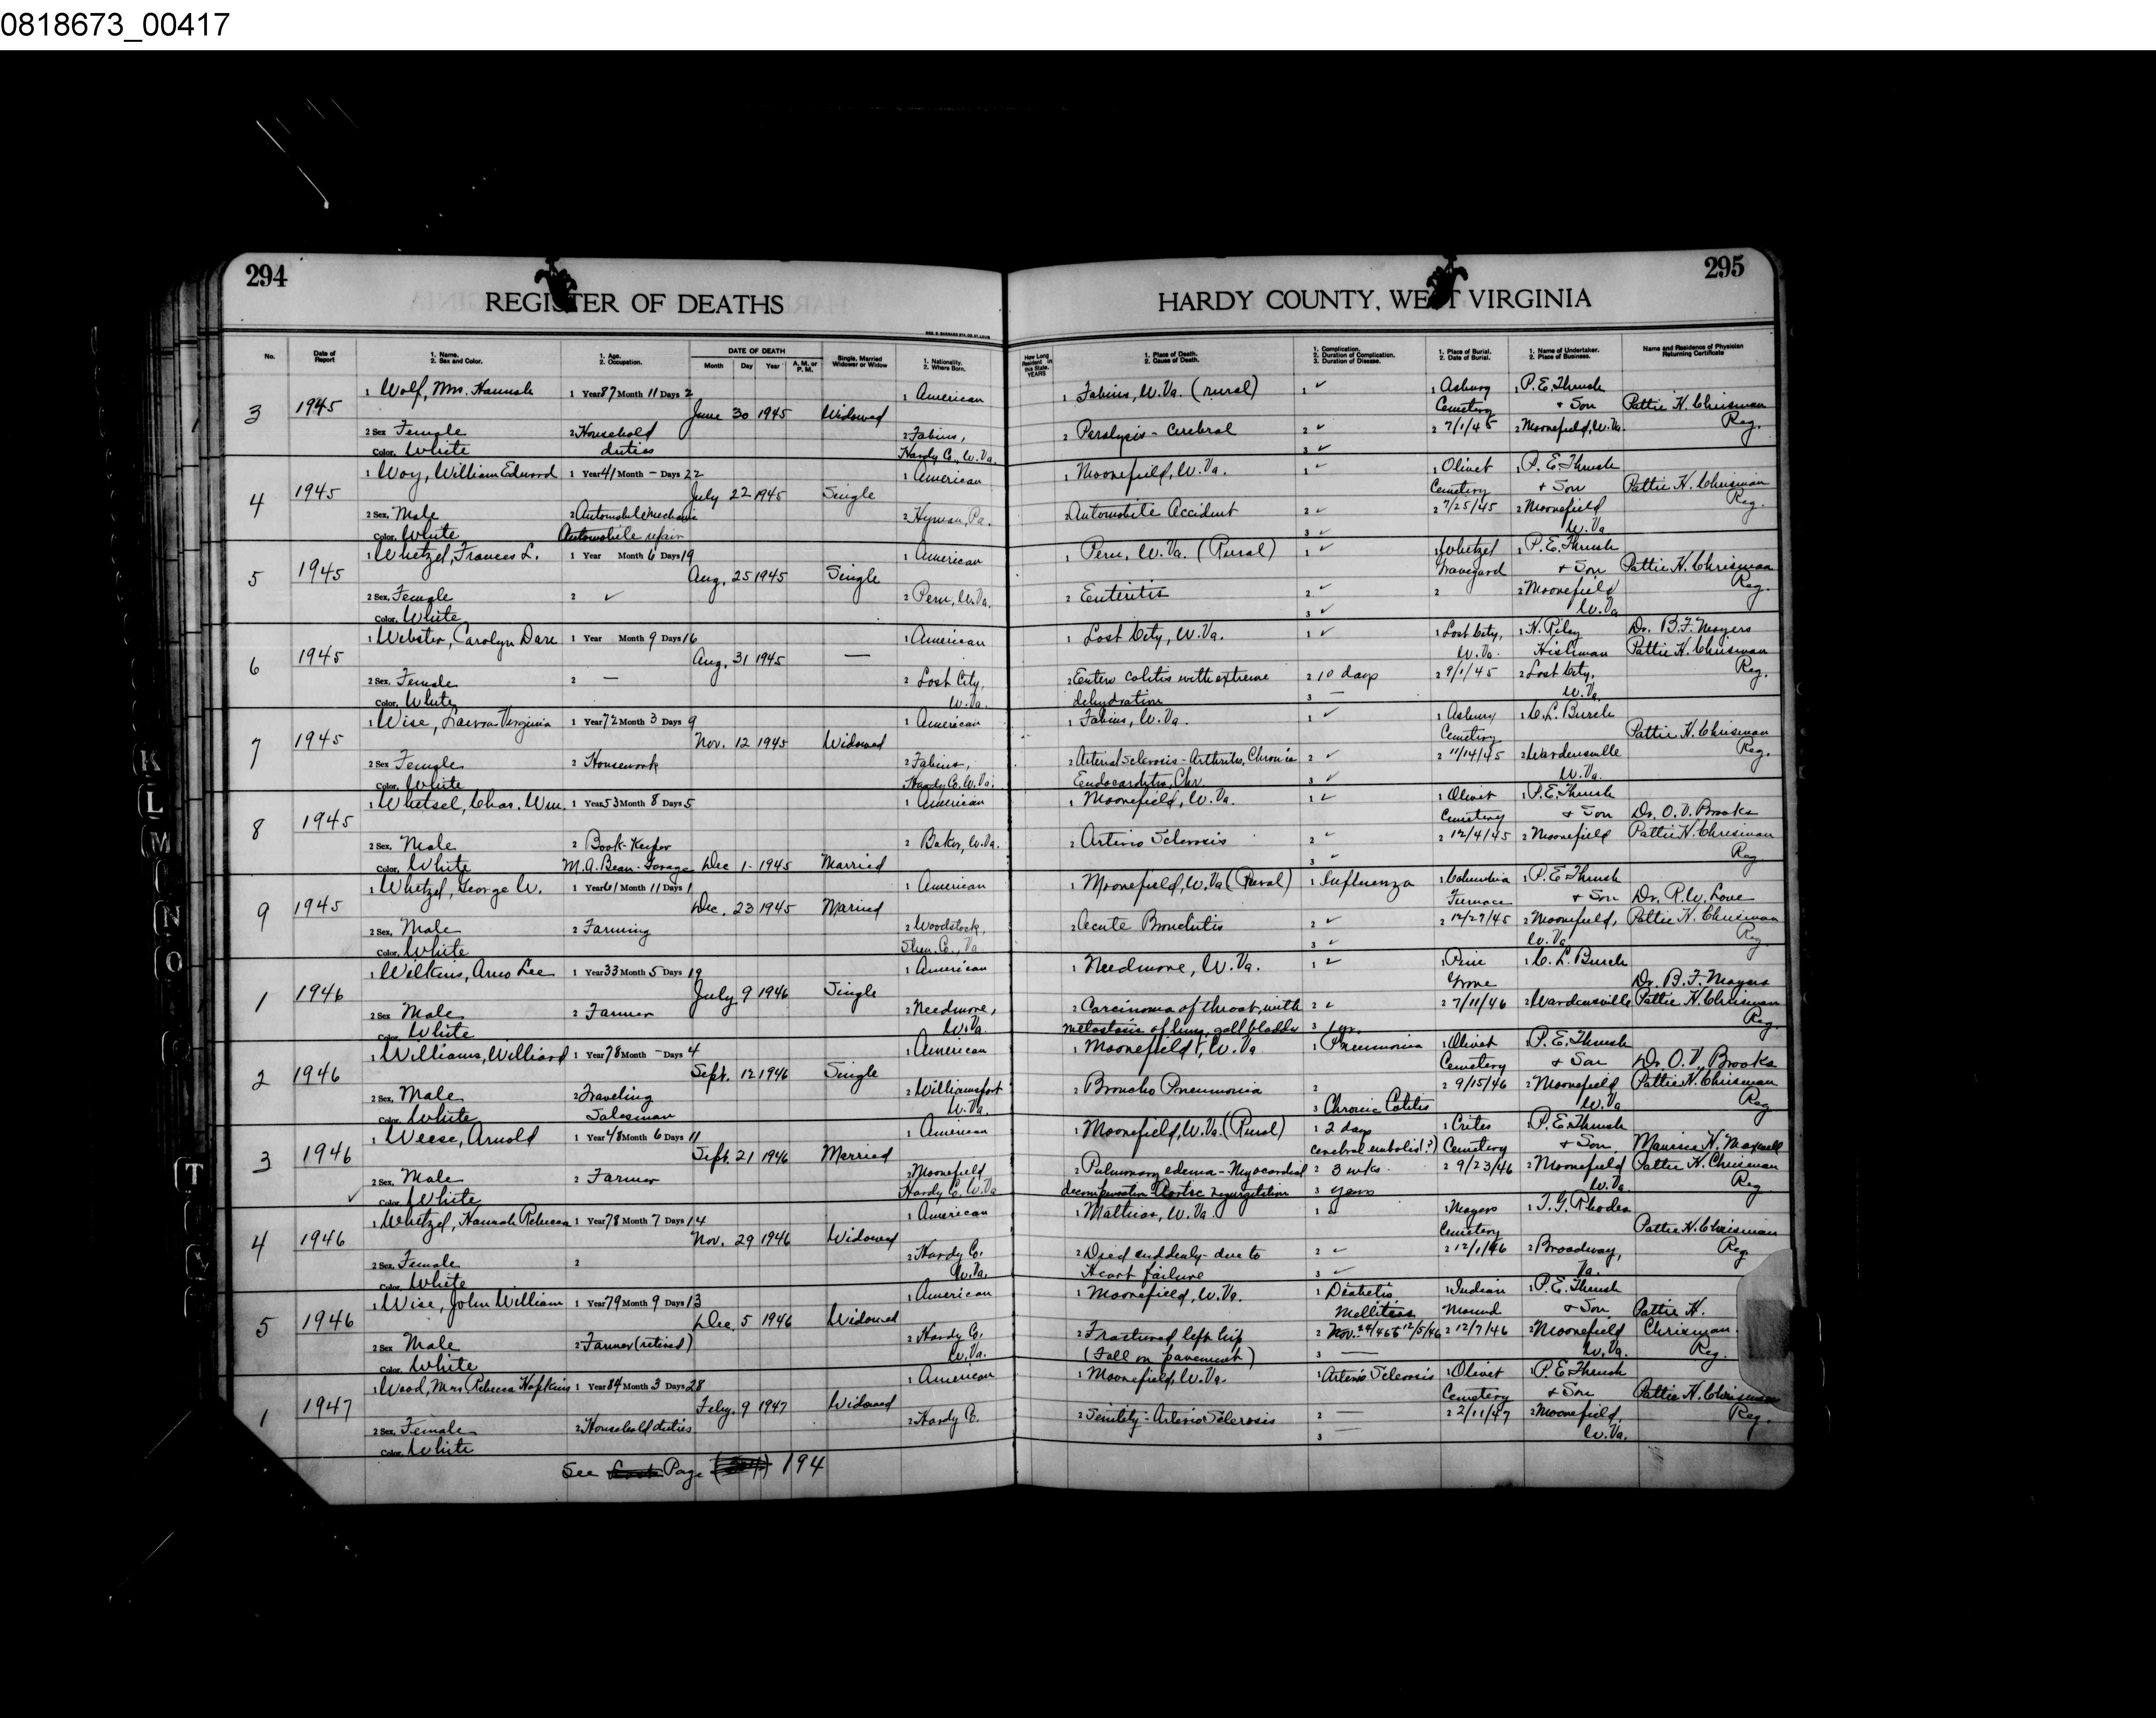 0818673_00417
294
REGISTER OF DEATHS
No.
Date of Report
1. Name. 2. Sex and Color.
1. Age. 2. Occupation.
DATE OF DEATH
Month Day Year A. M. or P. M.
Single, Married Widower or Widow
1. Nationality. 2. Where Born.
3 1945
1 Wolf, Mrs. Hannah 1 Year 87 Month 11 Days 2 1 American
June 30 1945 Widowed
2 Sex Female 2 Household 2 Fabius,
Color. White duties Hardy Co., W. Va.
4 1945
1 Way, William Edward 1 Year 41 Month - Days 22 1 American
July 22 1945 Single
2 Sex, Male 2 Automobile Mechanic 2 Hyman, Pa.
Color. White Automobile repair
5 1945
1 Whetzel, Frances L. 1 Year Month 6 Days 19 1 American
Aug. 25 1945 Single
2 Sex, Female 2 ✓ 2 Peru, W. Va.
Color. White
6 1945
1 Webster, Carolyn Dare 1 Year Month 9 Days 16 1 American
Aug. 31 1945 —
2 Sex, Female 2 — 2 Lost City,
Color. White W. Va.
7 1945
1 Wise, Virginia 1 Year 72 Month 3 Days 9 1 American
Nov. 12 1945 Widowed
2 Sex Female 2 Housework 2 Fabius,
Color. White Hardy Co. W. Va.
8 1945
1 Whetsel, Chas. Wm. 1 Year 53 Month 8 Days 5 1 American
2 Sex, Male 2 Book-Keeper 2 Baker, W. Va.
Color. White M. A. Bean-Garage Dec 1- 1945 Married
9 1945
1 Whetzel, George W. 1 Year 61 Month 11 Days 1 1 American
Dec. 23 1945 Married
2 Sex, Male 2 Farming 2 Woodstock,
Color. White Shen. Co., Va
1 1946
1 Wilkins, Arno Lee 1 Year 33 Month 5 Days 19 1 American
July 9 1946 Single
2 Sex Male 2 Farmer 2 Needmore,
Color. White W. Va.
2 1946
1 Williams, Williard 1 Year 78 Month - Days 4 1 American
Sept. 12 1946 Single
2 Sex, Male 2 Traveling 2 Williamsport
Color. White Salesman W. Va.
3 1946
1 Weese, Arnold 1 Year 48 Month 6 Days 11 1 American
Sept. 21 1946 Married
2 Sex, Male 2 Farmer 2 Moorefield
✓ Color. White Hardy Co. W. Va
4 1946
1 Whetzel, Hannah Rebecca 1 Year 78 Month 7 Days 14 1 American
Nov. 29 1946 Widowed
2 Sex, Female 2 2 Hardy Co.
Color. White W. Va.
5 1946
1 Wise, John William 1 Year 79 Month 9 Days 13 1 American
Dec. 5 1946 Widowed
2 Sex Male 2 Farmer (retired) 2 Hardy Co.
Color. White W. Va.
1 1947
1 Wood, Mrs Rebecca Hopkins 1 Year 84 Month 3 Days 28 1 American
Feby. 9 1947 Widowed
2 Sex, Female 2 Household duties 2 Hardy Co.
Color. White
See Page 194
295
HARDY COUNTY, WEST VIRGINIA
How Long Resident in this State. YEARS
1. Place of Death. 2. Cause of Death.
1. Complication. 2. Duration of Complication. 3. Duration of Disease.
1. Place of Burial. 2. Date of Burial.
1. Name of Undertaker. 2. Place of Business.
Name and Residence of Physician Returning Certificate
1 Fabius, W. Va. (rural) 1 ✓ 1 Asbury 1 P. E. Thrush
Cemetery & Son Pattie H. Chrisman
2 Paralysis - Cerebral 2 ✓ 2 7/1/45 2 Moorefield, W. Va. Reg.
3 ✓
1 Moorefield, W. Va. 1 ✓ 1 Olivet 1 P. E. Thrush
Cemetery & Son Pattie H. Chrisman
2 Automobile Accident 2 ✓ 2 7/25/45 2 Moorefield Reg.
3 ✓ W. Va
1 Peru, W. Va. (Rural) 1 ✓ 1 Whetzel 1 P. E. Thrush
Graveyard & Son Pattie H. Chrisman
2 Enteritis 2 ✓ 2 2 Moorefield Reg.
3 ✓ W. Va
1 Lost City, W. Va. 1 ✓ 1 Lost City, 1 H. Riley Dr. B. F. Moyers
W. Va. Hishman Pattie H. Chrisman
2 Entero colitis with extreme 2 10 days 2 9/1/45 2 Lost City, Reg.
dehydration 3 — W. Va.
1 Fabius, W. Va. 1 ✓ 1 Asbury 1 C. L. Burch
Cemetery Pattie H. Chrisman
2 Arterial Sclerosis - Arthritis, Chronic 2 ✓ 2 11/14/45 2 Wardensville Reg.
Endocarditis, Chr 3 ✓ W. Va.
1 Moorefield, W. Va. 1 ✓ 1 Olivet 1 P. E. Thrush
Cemetery & Son Dr. O. V. Brooks
2 Arterio Sclerosis 2 ✓ 2 12/4/45 2 Moorefield Pattie H. Chrisman
3 ✓ Reg.
1 Moorefield, W. Va (Rural) 1 Influenza 1 Columbia 1 P. E. Thrush
Furnace & Son Dr. R. W. Love
2 Acute Bronchitis 2 ✓ 2 12/27/45 2 Moorefield, Pattie H. Chrisman
3 ✓ W. Va Reg.
1 Needmore, W. Va. 1 ✓ 1 Pine 1 C. L. Burch
Grove Dr. B. F. Moyers
2 Carcinoma of throat, with 2 ✓ 2 7/11/46 2 Wardensville Pattie H. Chrisman
metastasis of lung, gall bladder 3 1 yr. Reg.
1 Moorefield, W. Va 1 Pneumonia 1 Olivet 1 P. E. Thrush
Cemetery & Son Dr. O. V. Brooks
2 Broncho Pneumonia 2 2 9/15/46 2 Moorefield Pattie H. Chrisman
3 Chronic Colitis W. Va Reg
1 Moorefield, W. Va. (Rural) 1 2 days 1 Crites 1 P. E. Thrush
cerebral embolis (?) Cemetery & Son Maurice H. Maxwell
2 Pulmonary edema - Myocardial 2 3 wks. 2 9/23/46 2 Moorefield Pattie H. Chrisman
decompensation Aortic regurgitation 3 years W. Va. Reg.
1 Mathias, W. Va. 1 ✓ 1 Moyers 1 T. G. Rhodes
Cemetery Pattie H. Chrisman
2 Died suddenly - due to 2 ✓ 2 12/1/46 2 Broadway, Reg
Heart failure 3 ✓ Va.
1 Moorefield, W. Va. 1 Diabetis 1 Indian 1 P. E. Thrush
Mellitiss Mound & Son Pattie H.
2 Fractured left hip 2 Nov. 24/46 to 12/5/46 2 12/7/46 2 Moorefield Chrisman
(Fall on pavement) 3 — W. Va. Reg.
1 Moorefield, W. Va. 1 Arterio Sclerosis 1 Olivet 1 P. E. Thrush
Cemetery & Son Pattie H. Chrisman
2 Senility - Arterio Sclerosis 2 — 2 2/11/47 2 Moorefield, Reg.
3 — W. Va.
K
L
M
N
O
T